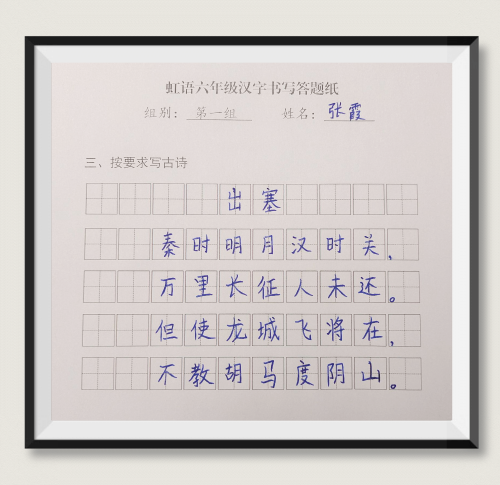 虹语六年级汉字书写答题纸
组别：第一组 姓名：张霞
三、按要求写古诗
出塞
秦时明月汉时关，
万里长征人未还。
但使龙城飞将在，
不教胡马度阴山。